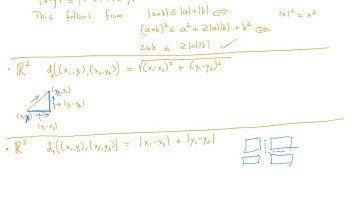 This follows from |a+b| ≤ |a|+|b| ⇔ |x|² = x²
(a+b)² ≤ a² + 2|a||b| + b² ⇔
2ab ≤ 2|a||b| ✓
• ℝ² d₂((x₁,y₁),(x₂,y₂)) = √(x₁-x₂)² + (y₁-y₂)²
(x₂,y₂)
|y₁-y₂|
|x₁-x₂|
• ℝ² d₁((x₁,y₁),(x₂,y₂)) = |x₁-x₂| + |y₁-y₂|